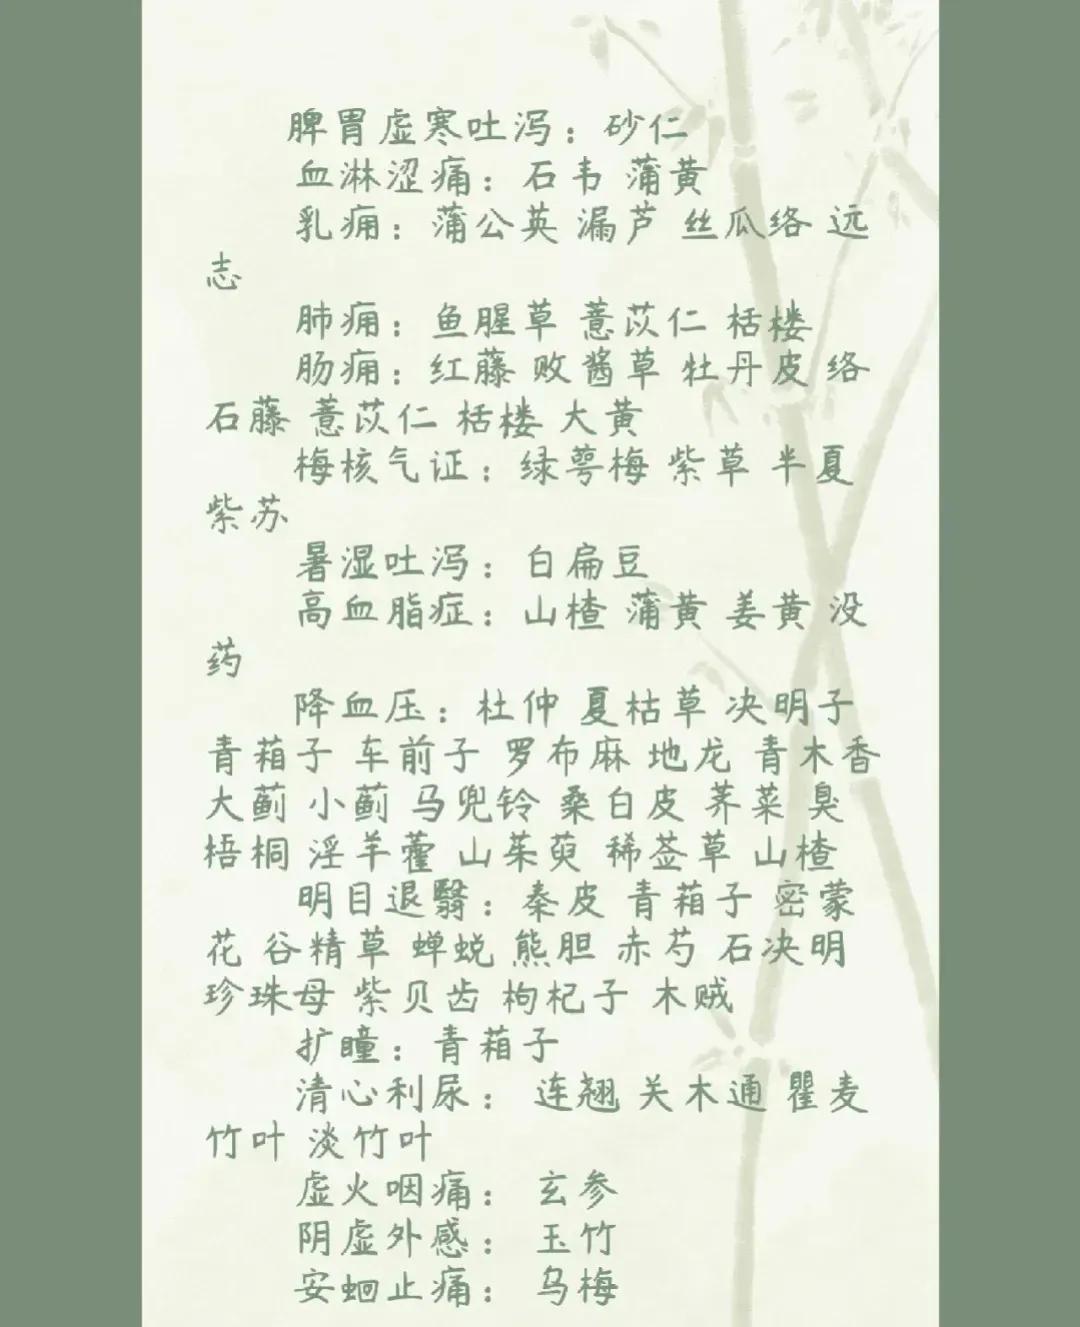 脾胃虚寒吐泻：砂仁
血淋涩痛：石韦 蒲黄
乳痈：蒲公英 漏芦 丝瓜络 远
志
肺痈：鱼腥草 薏苡仁 栝楼
肠痈：红藤 败酱草 牡丹皮 络
石藤 薏苡仁 栝楼 大黄
梅核气证：绿萼梅 紫草 半夏
紫苏
暑湿吐泻：白扁豆
高血脂症：山楂 蒲黄 姜黄 没
药
降血压：杜仲 夏枯草 决明子
青葙子 车前子 罗布麻 地龙 青木香
大蓟 小蓟 马兜铃 桑白皮 荠菜 臭
梧桐 淫羊藿 山茱萸 稀莶草 山楂
明目退翳：秦皮 青葙子 密蒙
花 谷精草 蝉蜕 熊胆 赤芍 石决明
珍珠母 紫贝齿 枸杞子 木贼
扩瞳：青葙子
清心利尿： 连翘 关木通 瞿麦
竹叶 淡竹叶
虚火咽痛： 玄参
阴虚外感： 玉竹
安蛔止痛： 乌梅